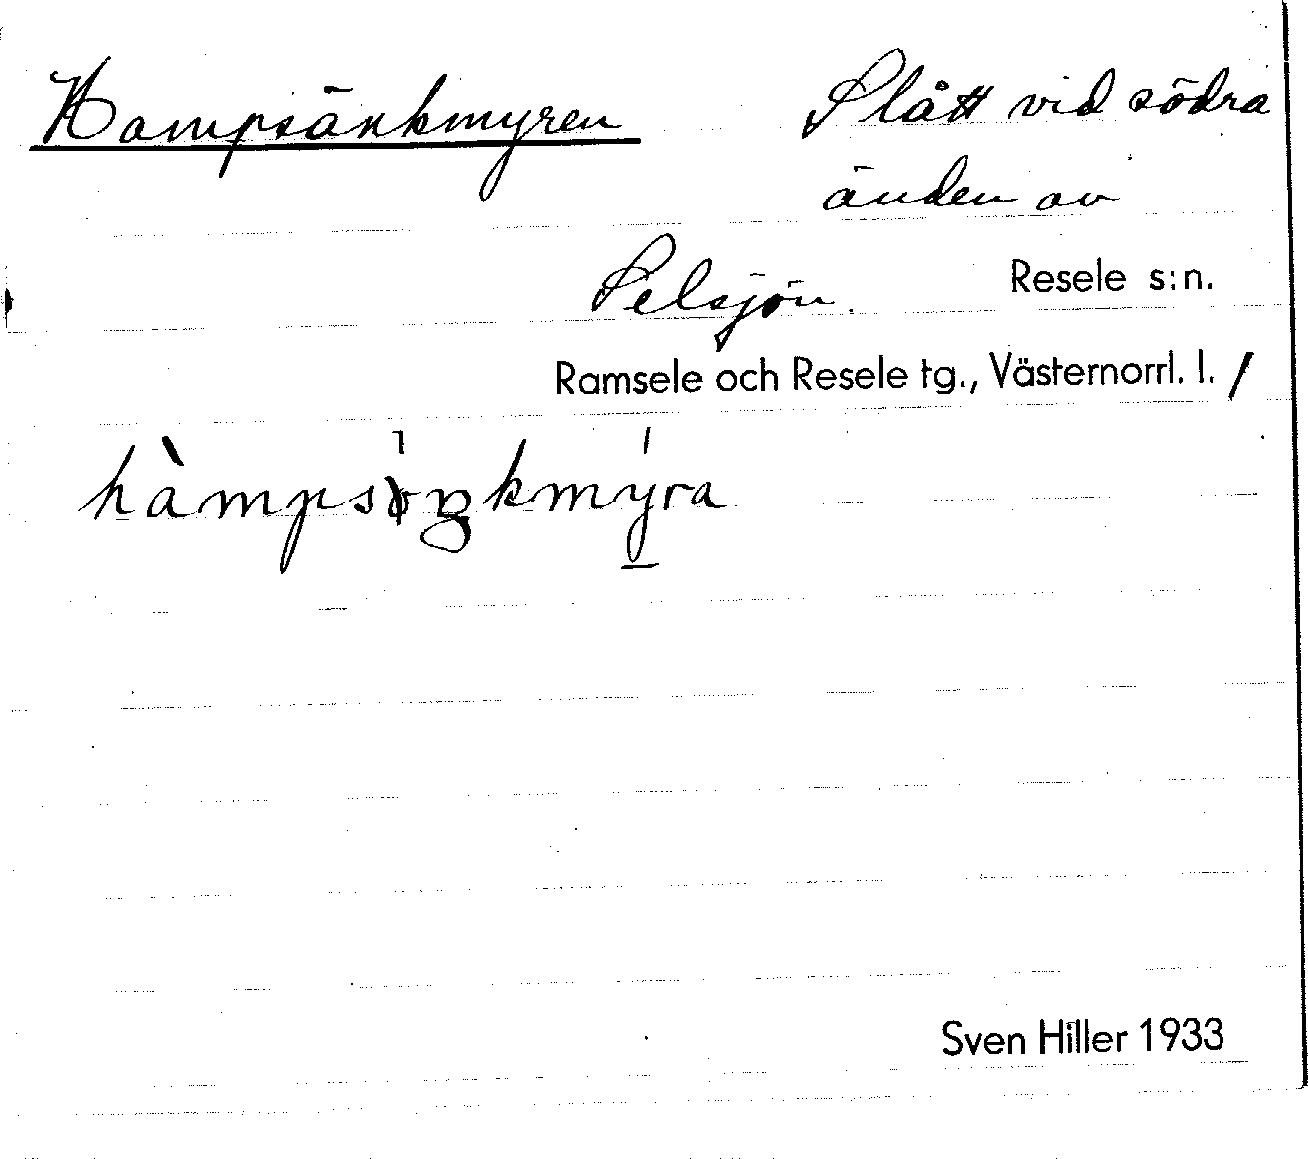 Hampsänkmyren Slått vid södra
änden av
Selsjön.
Resele s:n.
Ramsele och Resele tg., Västernorrl. l. /
Sven Hiller 1933